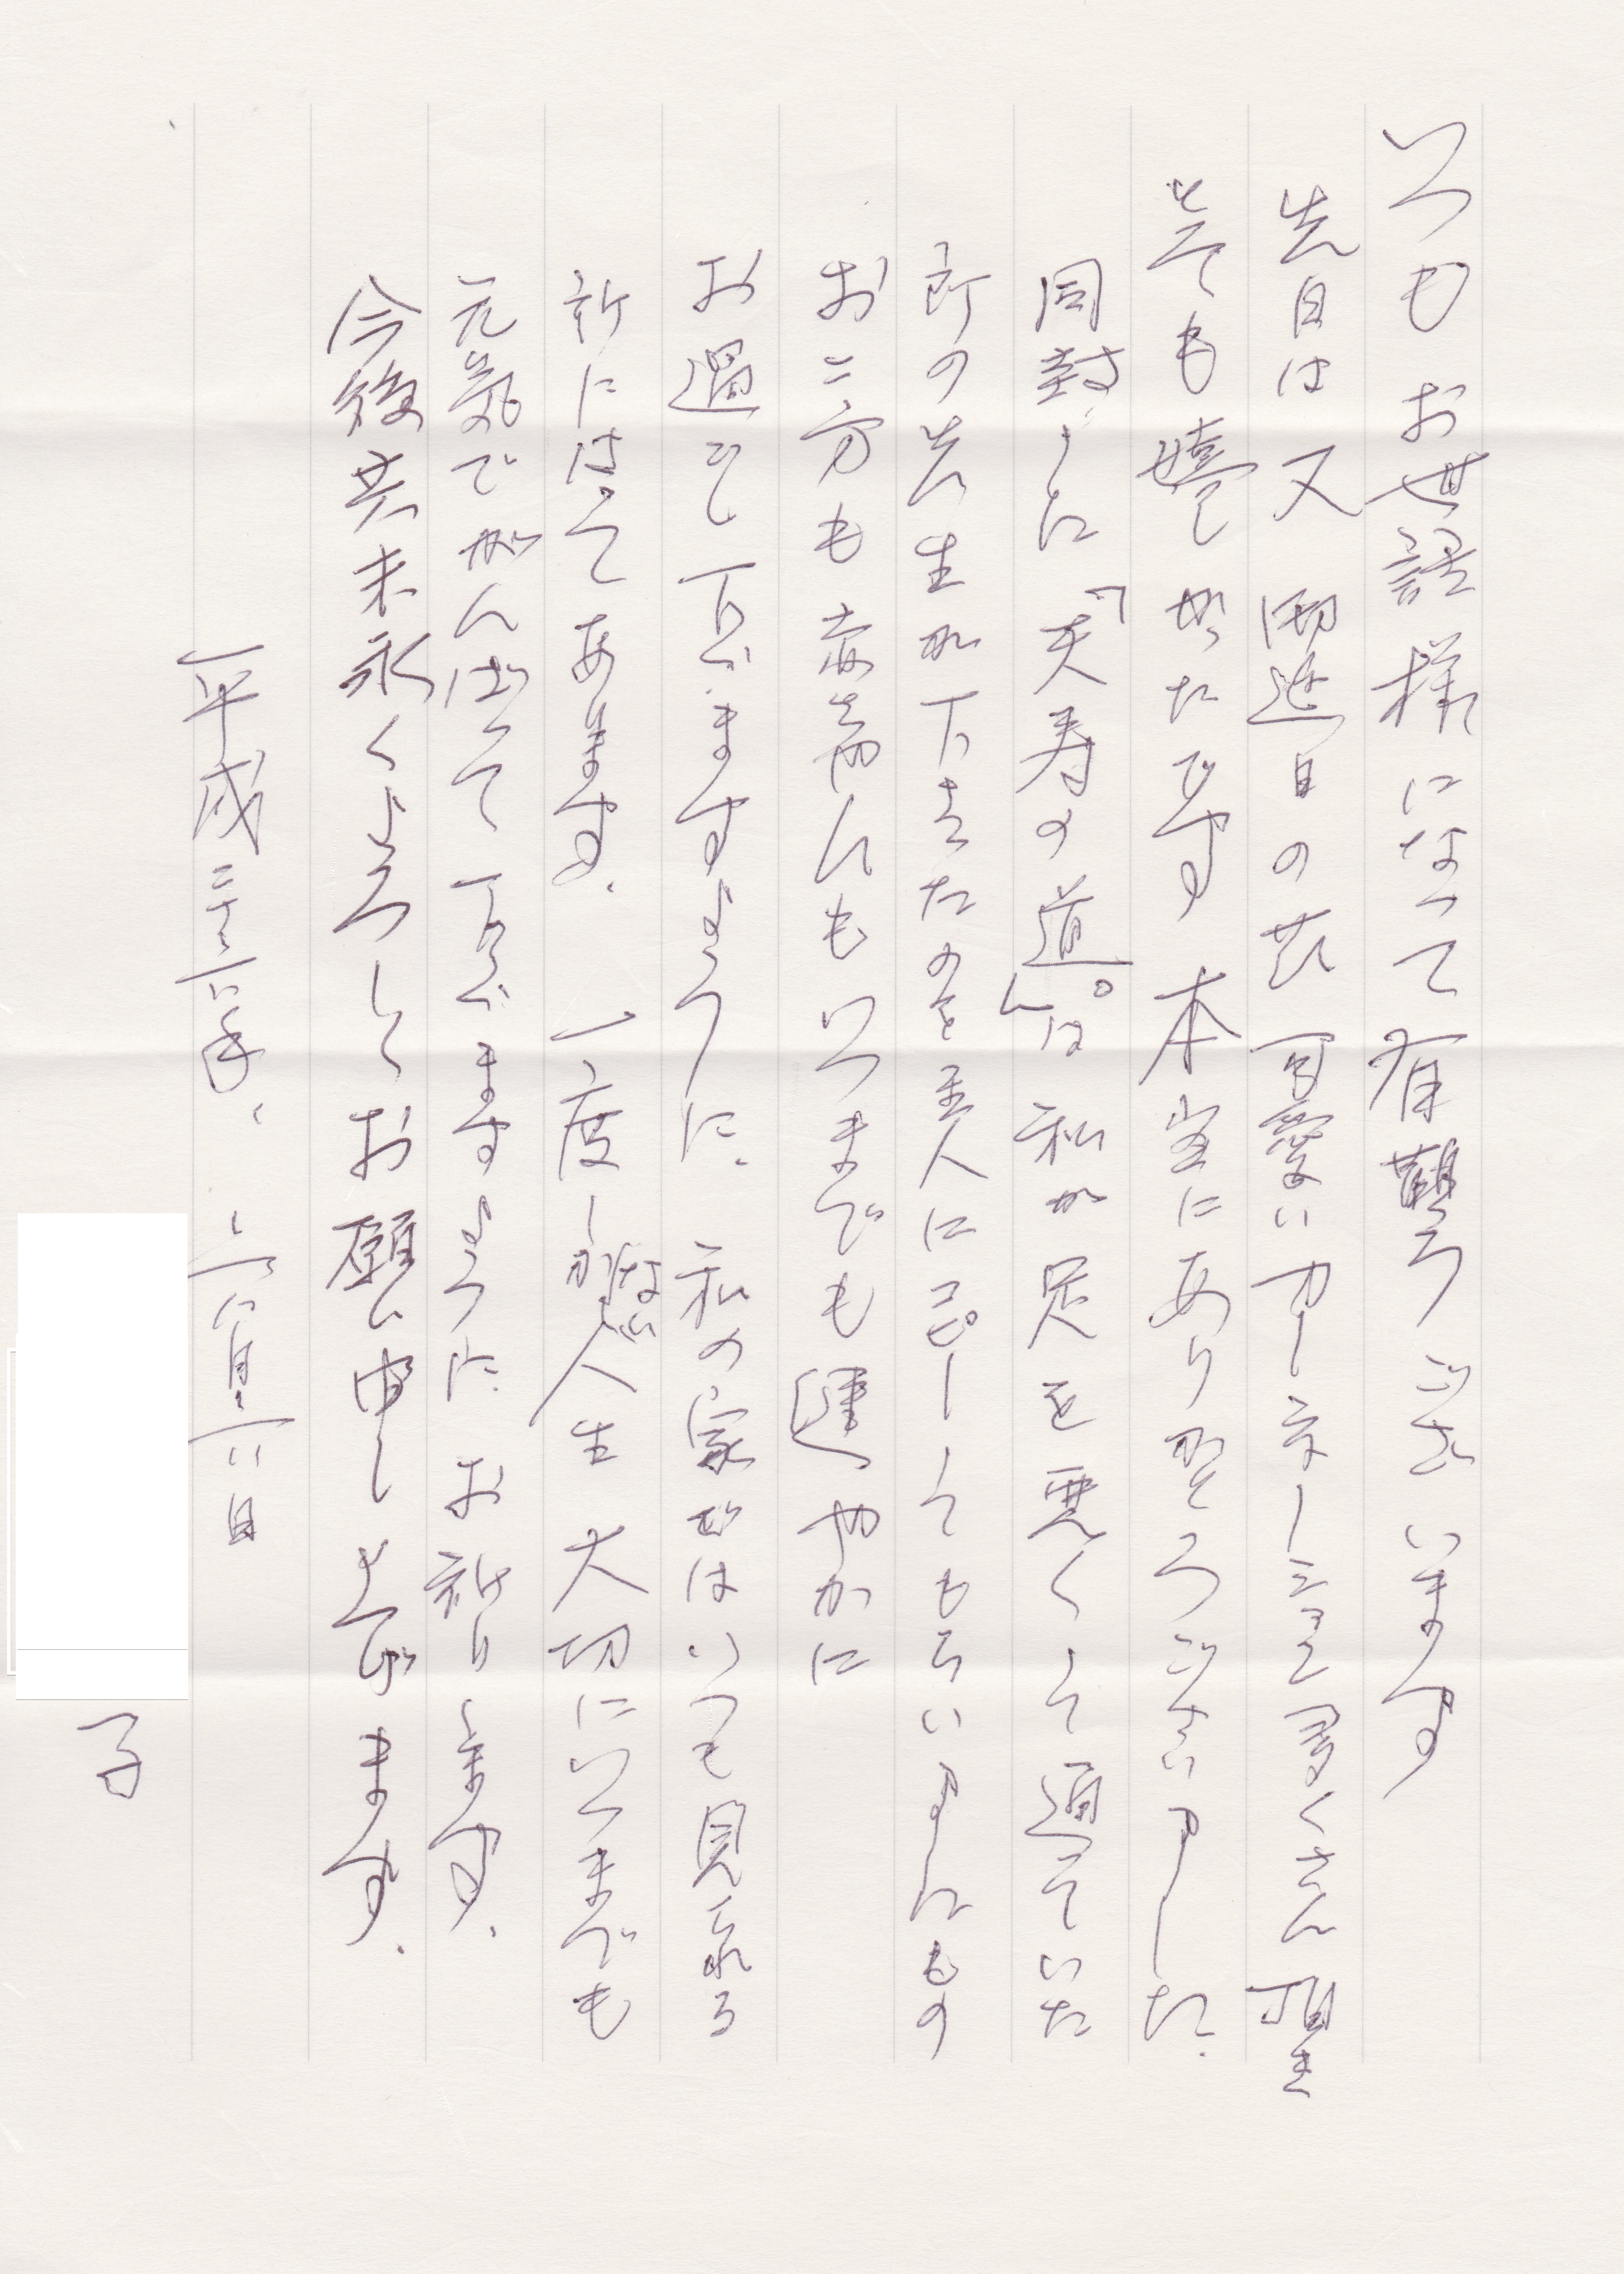 いつもお世話様になって有難うございます
先日は又 御誕生日の花 可愛いカーネーション 多くさん頂き
とても嬉しかったです 本当にありがとうございました。
同封した「天寿の道。」は 私が足を悪くして通っていた
所の先生が下さったのを主人にコピーしてもらいましたもの
お二方も赤ちゃんもいつまでも健やかに
お過ごし下さいますように。 私の家ではいつも見れる
所にはってあります。 一度しかない人生 大切にいつまでも
元気でがんばって下さいますように お祈りします。
今後共末永くよろしくお願い申し上げます。
平成二十六年、 六月六日
子